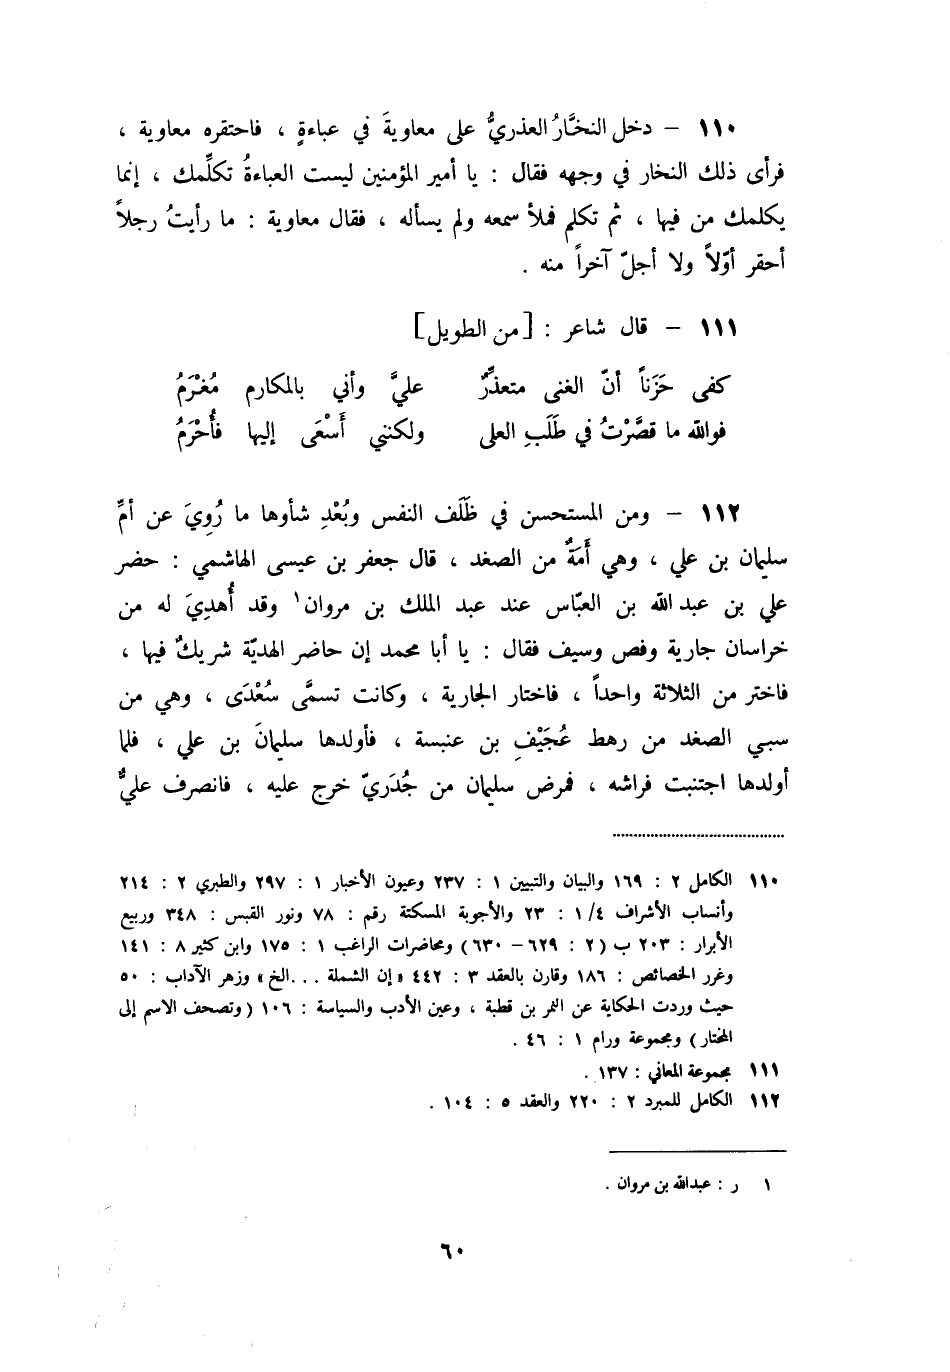 ١١٠ – دخل النخَّارُ العذريُّ على معاويةَ في عباءةٍ ، فاحتقره معاوية ،
فرأى ذلك النخار في وجهه فقال : يا أمير المؤمنين ليست العباءةُ تكلِّمك ، إنما
يكلمك من فيها ، ثم تكلم فملأ سمعه ولم يسأله ، فقال معاوية : ما رأيتُ رجلاً
أحقر أوّلاً ولا أجلّ آخراً منه .
١١١ – قال شاعر : [من الطويل]
كفى حَزَناً أنّ الغنى متعذرٌ عليَّ وأني بالمكارم مُغْرَمُ
فوالله ما قصَّرْتُ في طَلَبِ العلى ولكنني أَسْعَى إليها فأُحْرَمُ
١١٢ – ومن المستحسن في ظَلَف النفس وبُعْدِ شأوها ما رُوِيَ عن أمِّ
سليمان بن علي ، وهي أَمَةٌ من الصغد ، قال جعفر بن عيسى الهاشمي : حضر
علي بن عبد الله بن العبّاس عند عبد الملك بن مروان١ وقد أُهدِيَ له من
خراسان جارية وفص وسيف فقال : يا أبا محمد إن حاضر الهديّة شريكٌ فيها ،
فاختر من الثلاثة واحداً ، فاختار الجارية ، وكانت تسمَّى سُعْدَى ، وهي من
سبي الصغد من رهط عُجَيْفِ بن عنبسة ، فأولدها سليمانَ بن علي ، فلما
أولدها اجتنبت فراشه ، فمرض سليمان من جُدَريّ خرج عليه ، فانصرف عليٌّ
١١٠ الكامل ٢ : ١٦٩ والبيان والتبيين ١ : ٢٣٧ وعيون الأخبار ١ : ٢٩٧ والطبري ٢ : ٢١٤
وأنساب الأشراف ٤/١ : ٢٣ والأجوبة المسكتة رقم : ٧٨ ونور القبس : ٣٤٨ وربيع
الأبرار : ٢٠٣ ب (٢ : ٦٢٩ – ٦٣٠) ومحاضرات الراغب ١ : ١٧٥ وابن كثير ٨ : ١٤١
وغرر الخصائص : ١٨٦ وقارن بالعقد ٣ : ٤٤٢ «إن الشملة ...الخ» وزهر الآداب : ٥٠
حيث وردت الحكاية عن النمر بن قطبة ، وعين الأدب والسياسة : ١٠٦ (وتصحف الاسم إلى
المختار) ومجموعة ورام ١ : ٤٦ .
١١١ مجموعة المعاني : ١٣٧ .
١١٢ الكامل للمبرد ٢ : ٢٢٠ والعقد ٥ : ١٠٤ .
١ ر : عبدالله بن مروان .
٦٠